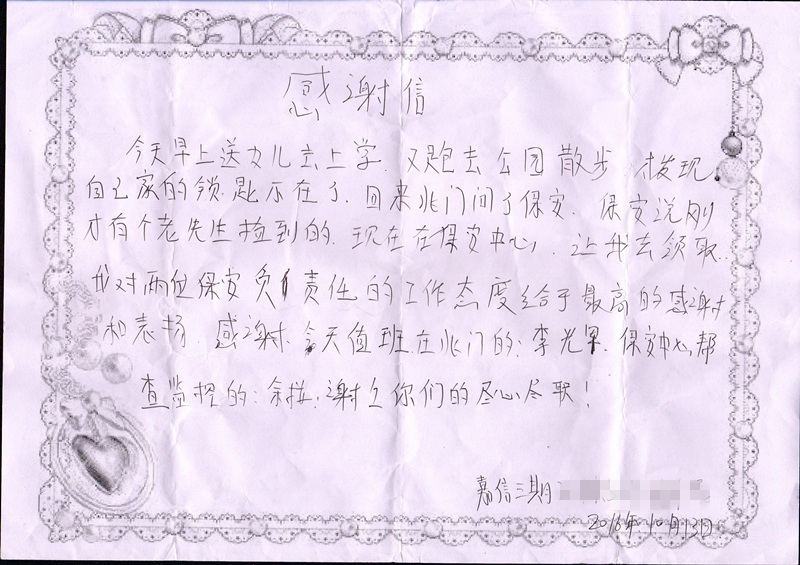 感谢信
今天早上送女儿去上学. 又跑去公园散步. 发现
自己家的锁匙不在了. 回来北门问了保安. 保安说刚
才有个老先生捡到的. 现在在保安中心, 让我去领取.
我对两位保安负责任的工作态度给于最高的感谢
和表扬. 感谢今天值班在北门的: 李光早. 保安中心帮
查监控的: 余拉, 谢谢你们的尽心尽职!
嘉信三期
10月13日